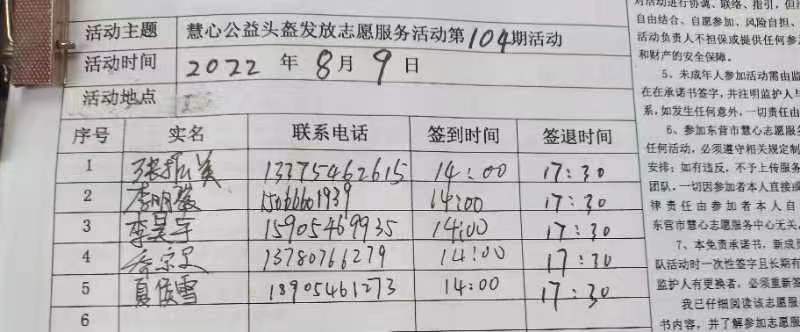 活动主题 慧心公益头盔发放志愿服务活动第104期活动
活动时间 2022 年 8 月 9 日
活动地点
序号 实名 联系电话 签到时间 签退时间
1 13375462615 14:00 17:30
2 李明 15066601939 14:00 17:30
3 李昊宇 15905469935 14:00 17:30
4 13780766279 14:00 17:30
5 夏俊雪 18905461273 14:00 17:30
6
对活动进行协调、联络、指引，但
自由结合、自愿参加、风险自担、
活动负责人不担保或提供任何参
和财产的安全保障。
5、未成年人参加活动需由监
在在承诺书签字，并注明监护人与
系，如发生任何意外，一切责任由
6、参加东营市慧心志愿服务
任何活动，必须遵守相关规定制
安排；如有违反，不予上传服务
团队，一切因参加者本人直接或
律责任由参加者本人自
东营市慧心志愿服务中心无关。
7、本免责承诺书，新成员
队活动时一次性签字且长期有
监护人有更换者，必须重新签
我已仔细阅读该志愿服
书内容，并了解参加志愿服